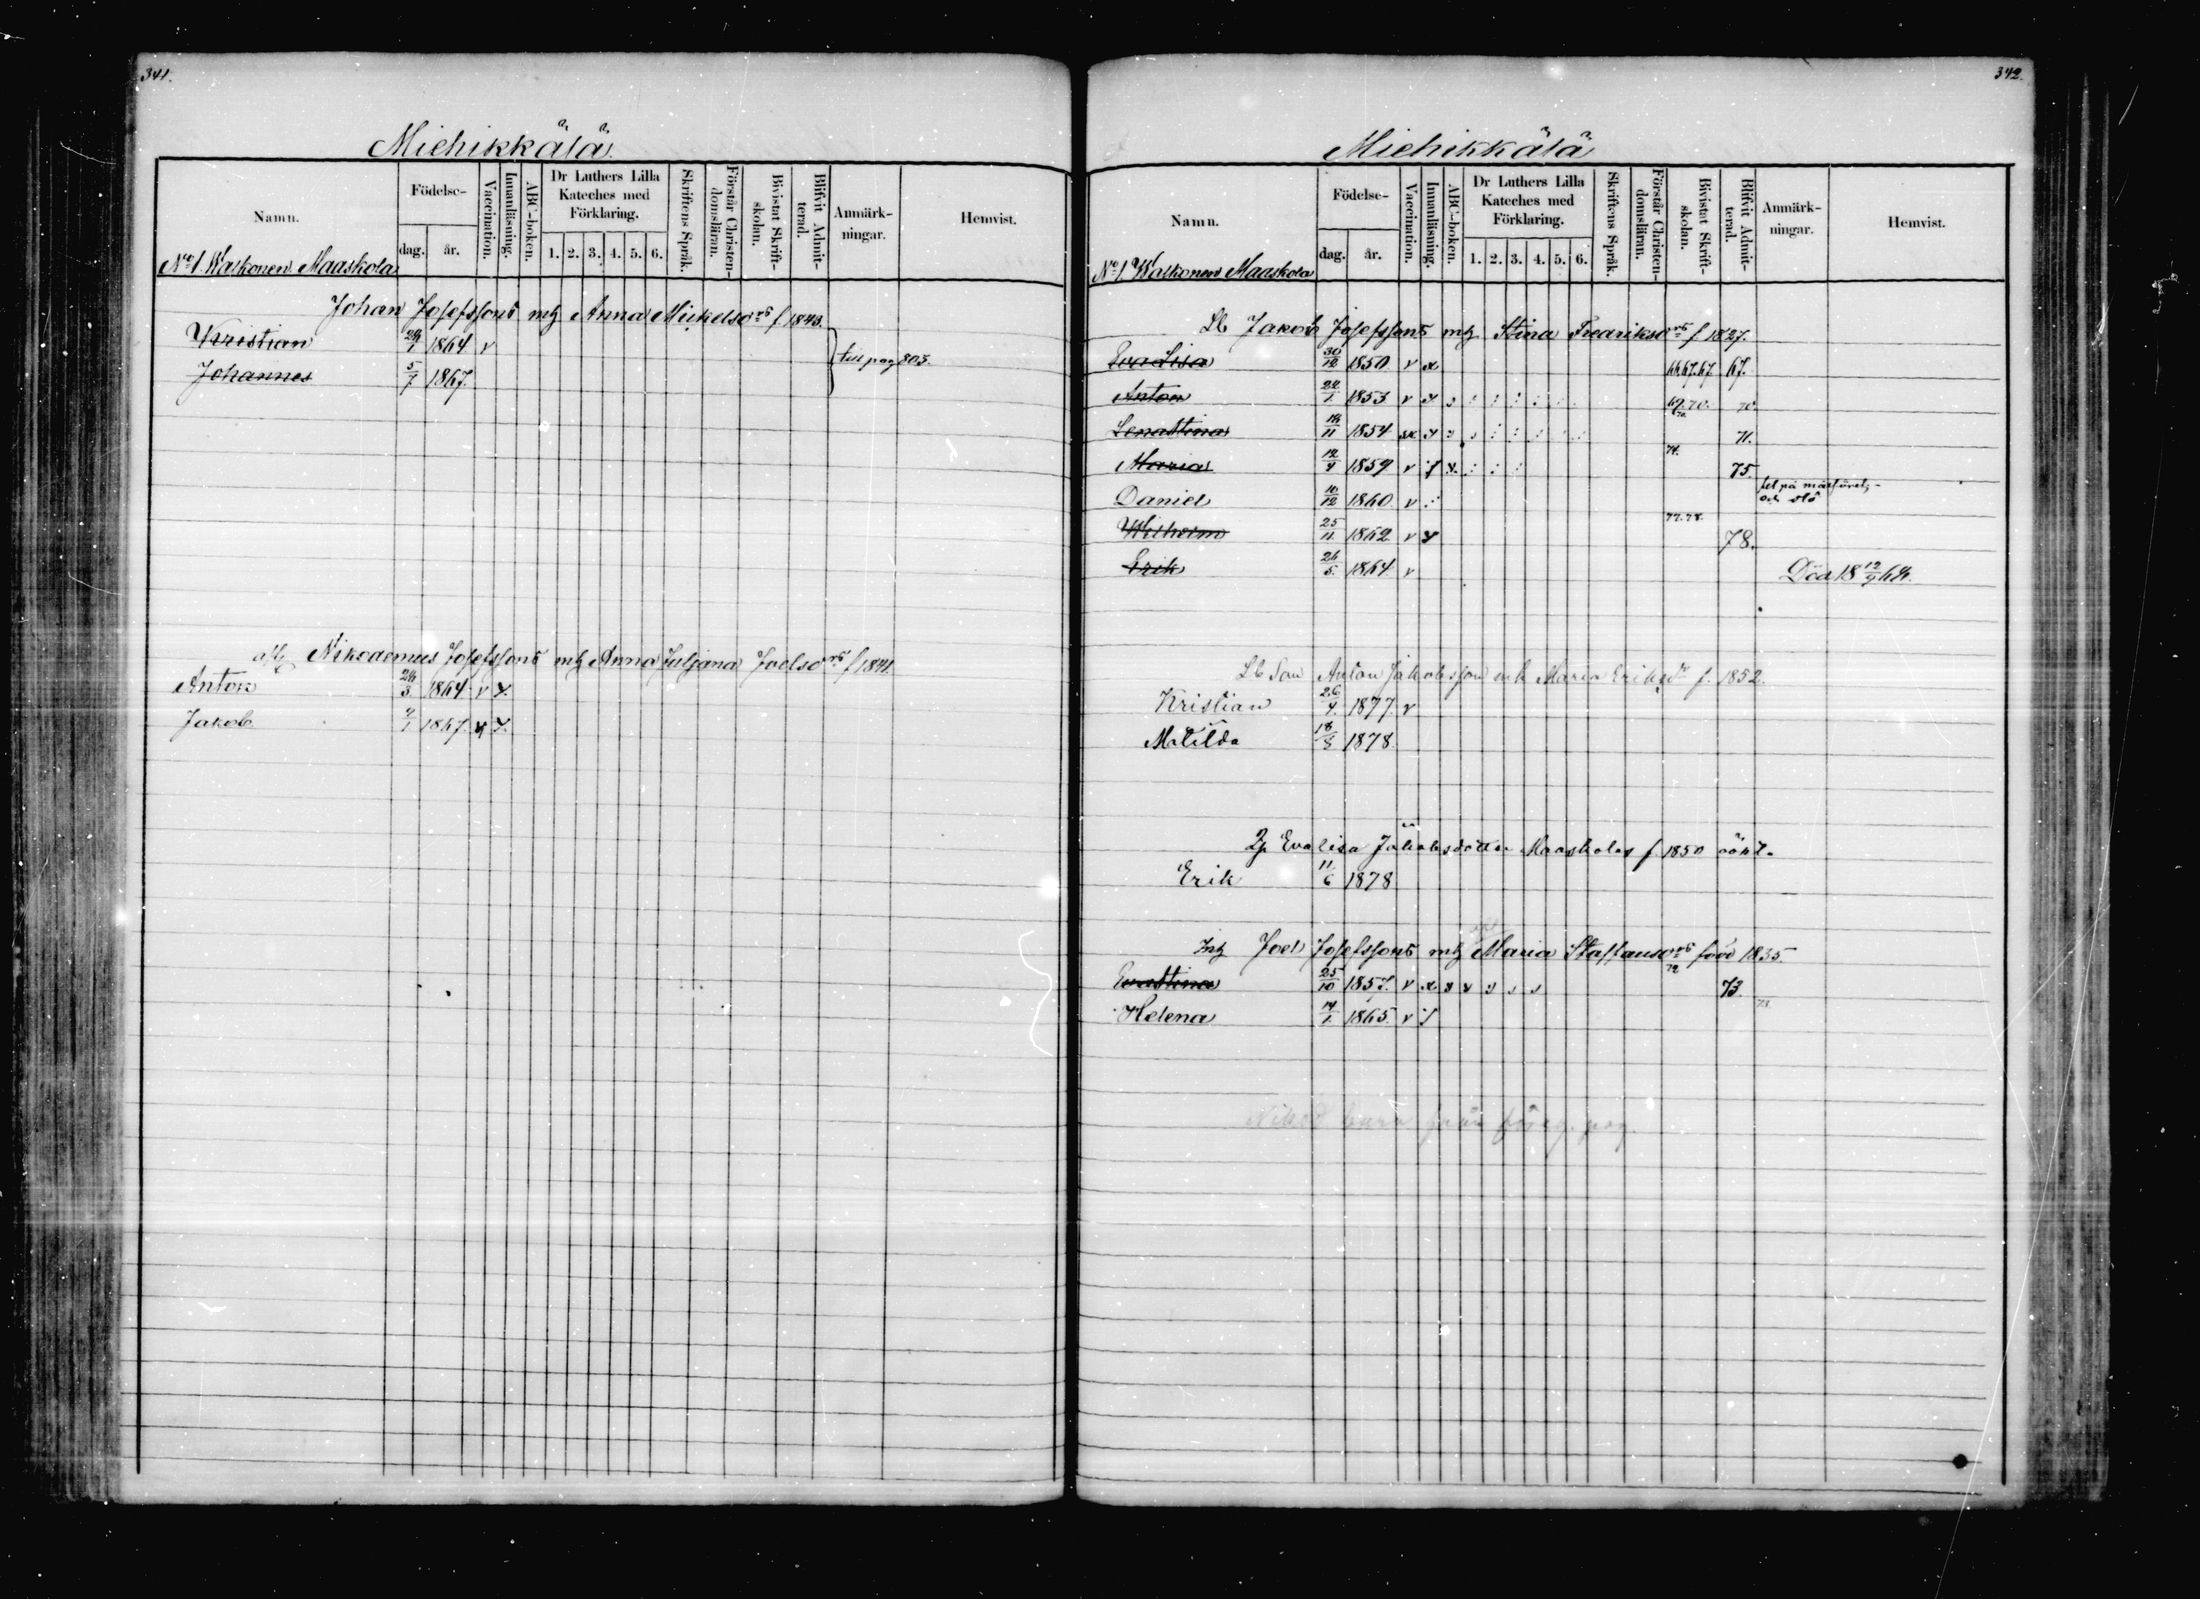 341.
Miehikkälä
Namn.
Födelse-
dag.
år.
Vaccination.
Innanläsning.
ABC-boken.
Dr Luthers Lilla
Kateches med
Förklaring.
1. 2. 3. 4. 5. 6.
Skriftens Språk.
Förstår Christen-
domsläran.
Bivistat Skrift-
skolan.
Blifvit Admit-
terad.
Anmärk-
ningar.
Hemvist.
No 1. Walkonen Maaskola
Johan Josefssons mh Anna Mickelsdrs f 1843.
Kristian 1864 v
Johannes 5/7 1867.
till pag 803.
Nikodemus Josefssons mh Anna Juljana Joelsdrs f 1841.
Anton 1864 v
Jakob 1867.
342.
Miehikkälä
Namn.
Födelse-
dag.
år.
Vaccination.
Innanläsning.
ABC-boken.
Dr Luthers Lilla
Kateches med
Förklaring.
1. 2. 3. 4. 5. 6.
Skriftens Språk.
Förstår Christen-
domsläran.
Bivistat Skrift-
skolan.
Blifvit Admit-
terad.
Anmärk-
ningar.
Hemvist.
No 1. Walkonen Maaskola
Lb Jakob Josefssons mh Stina Fredriksdrs f 1827.
Eva Lisa 30/12 1850 v x 66.67.67 67.
Anton 22/1 1853 v 69.70. 70.
Lena Stina 1854 71.
Maria 12/4 1859 v 74. 75.
Daniel 10/12 1860 v
och slö
Wilhelm 25/11 1862 v 77.78. 78.
Erik 1864 v Död 18 12/9 64.
Lb Son Anton Jakobsson mh Maria Eriksdr f. 1852.
Kristian 26/4. 1877. v
Matilda 18/8 1878
Eva Lisa Jakobsdotter Maaskolas f 1850 oäkt.
Erik 11/6 1878
Inh Joel Josefssons mh Maria Staffansdrs född 1835.
Eva Stina 25/10 1857. v x 72 73.
Helena 14/1 1865. v 73
från föreg. pag